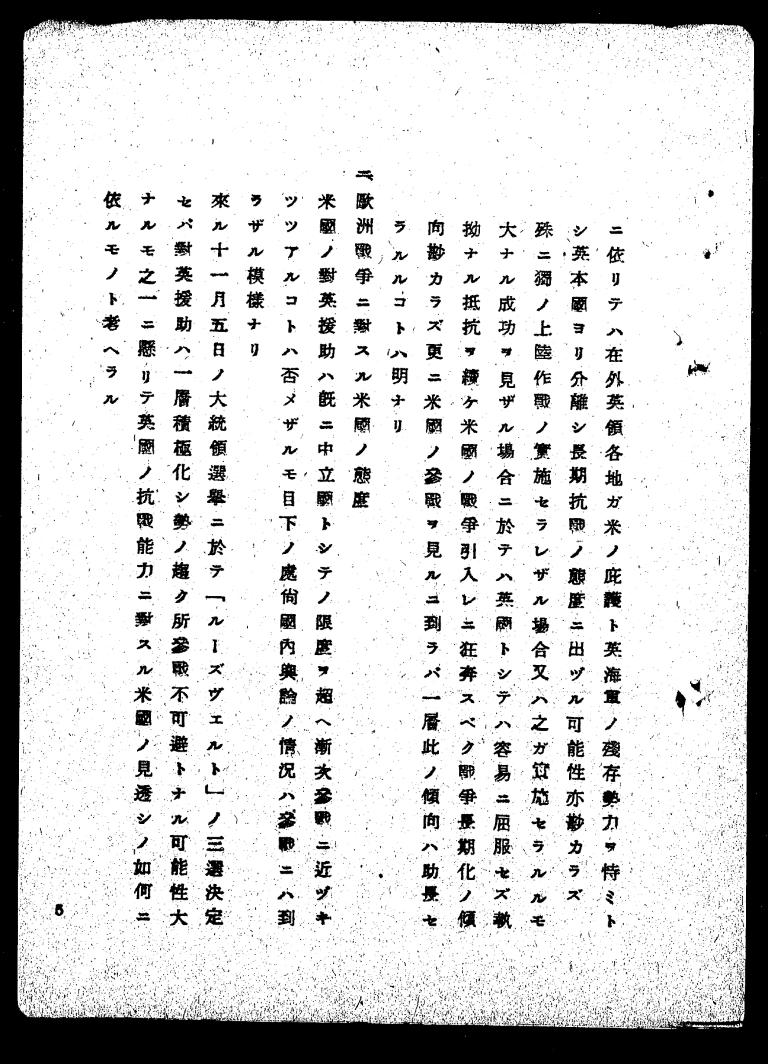 ニ依リテハ在外英領各地ガ米ノ庇護ト英海軍ノ殘存勢力ヲ恃ミト
シ英本國ヨリ分離シ長期抗戰ノ態度ニ出ヅル可能性亦尠カラズ
殊ニ獨ノ上陸作戰ノ實施セラレザル場合又ハ之ガ實施セラルルモ
大ナル成功ヲ見ザル場合ニ於テハ英國トシテハ容易ニ屈服セズ執
拗ナル抵抗ヲ續ケ米國ノ戰爭引入レニ狂奔スベク戰爭長期化ノ傾
向尠カラズ更ニ米國ノ參戰ヲ見ルニ到ラバ一層此ノ傾向ハ助長セ
ラルルコトハ明ナリ
二、歐洲戰爭ニ對スル米國ノ態度
米國ノ對英援助ハ既ニ中立國トシテノ限度ヲ超ヘ漸次參戰ニ近ヅキ
ツツアルコトハ否メザルモ目下ノ處尙國內輿論ノ情況ハ參戰ニハ到
ラザル模樣ナリ
來ル十一月五日ノ大統領選擧ニ於テ「ルーズヴエルト」ノ三選決定
セバ對英援助ハ一層積極化シ勢ノ趨ク所參戰不可避トナル可能性大
ナルモ之一ニ懸リテ英國ノ抗戰能力ニ對スル米國ノ見透シノ如何ニ
依ルモノト考ヘラル
5